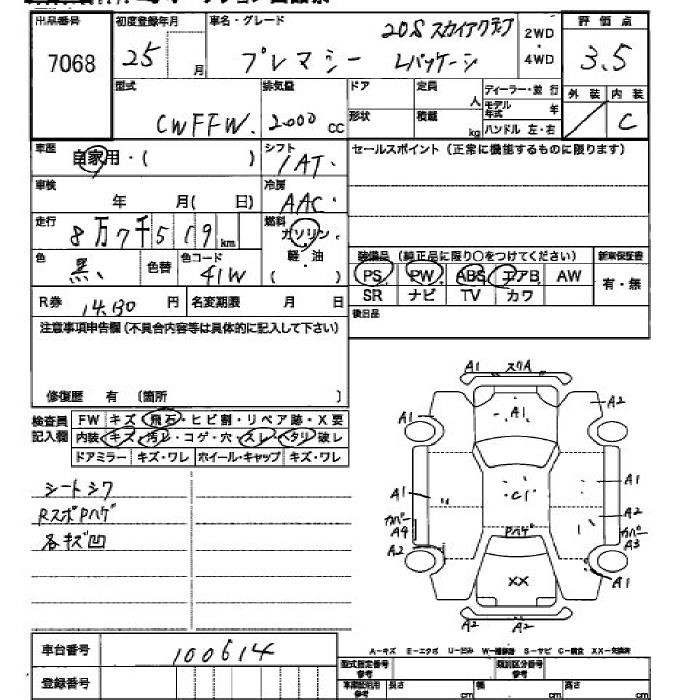 出品番号 初度登録年月 車名・グレード 20S スカイアクティブ 2WD 評価点
7068 25 月 プレマシー Lパッケージ ・4WD 3.5
型式 排気量 ドア 定員 人 ディーラー・並行 外装 内装
CWFFW. 2000 cc 形状 積載 kg モデル年式 年 / C
ハンドル 左・右
車歴 自家用・( ) シフト 1AT. セールスポイント (正常に機能するものに限ります)
車検 年 月( 日) 冷房 AAC.
走行 8万7千519 km 燃料 ガソリン
色 黒、 色替 色コード 41W 軽・油 ( )
装備品 (純正品に限り○をつけてください) 新車保証書
PS PW ABS エアB AW 有・無
SR ナビ TV カワ
R券 14.130 円 名変期限 月 日 後日品
注意事項申告欄 (不具合内容等は具体的に記入して下さい)
修復歴 有 〔箇所 〕
検査員記入欄 FW キズ・飛石・ヒビ割・リペア跡・X要
内装 キズ・汚レ・コゲ・穴・スレ・ヘタリ・破レ
ドアミラー キズ・ワレ ホイール・キャップ キズ・ワレ
シートシワ
RスポPハゲ
各キズ凹
A1 スリA
A1 A1 A2
A1 C1 A1
A2
カバー A4 Pハゲ カバー A3
A2 XX A1
A2 A2
A-キズ E-エクボ U-凹ミ W-補修跡 S-サビ C-腐食 XX-交換済
車台番号 100614
型式指定番号 参考 類別区分番号 参考
登録番号 車庫証明用 参考 長さ cm 幅 cm 高さ cm